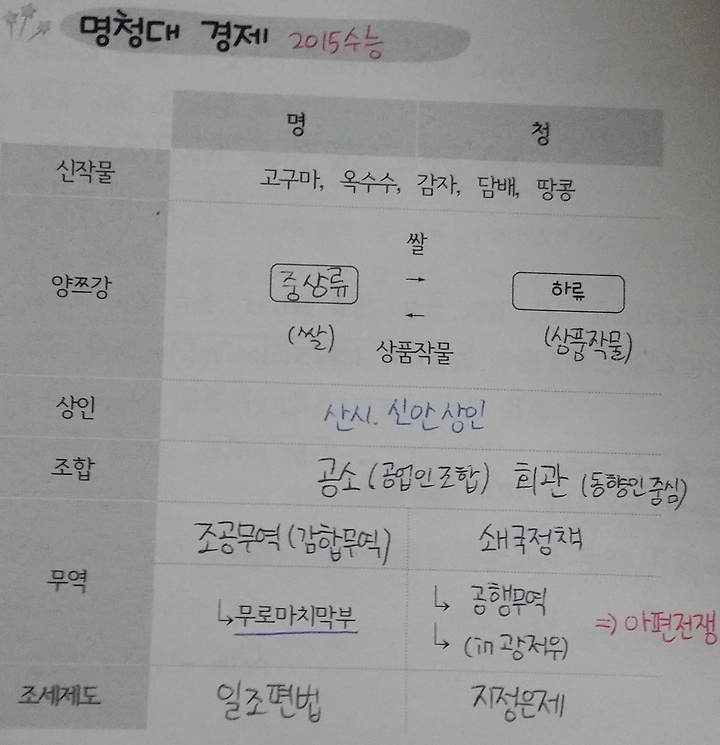 명청대 경제 2015수능
명 청
신작물 고구마, 옥수수, 감자, 담배, 땅콩
쌀
양쯔강 중상류 → 하류
←
(쌀) 상품작물 (상품작물)
상인 산시. 신안 상인
조합 공소 (공업인 조합) 회관 (동향인 중심)
무역 조공무역 (감합무역) 쇄국정책
↳ 무로마치막부 ↳ 공행무역
↳ (in 광저우) => 아편전쟁
조세제도 일조편법 지정은제